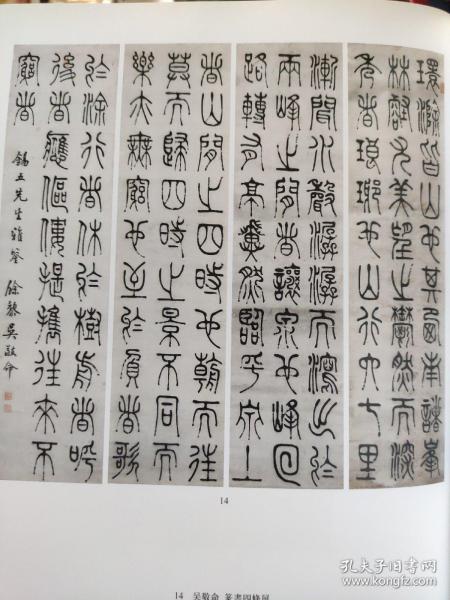 環滁皆山也其西南諸峯
林壑尤美望之鬱然而深
秀者琅琊也山行六七里
漸聞水聲潺潺而瀉出於
兩峰之間者讓泉也峰回
路轉有亭翼然臨乎泉上
者山間之四時也朝而往
暮而歸四時之景不同而
樂亦無窮也至於負者歌
於涂行者休於樹前者呼
後者應傴僂提攜往來不
窮者
錫五先生雅鑒 吳敬命
14
14 吴敬命 篆書四條屏
孔夫子旧书网